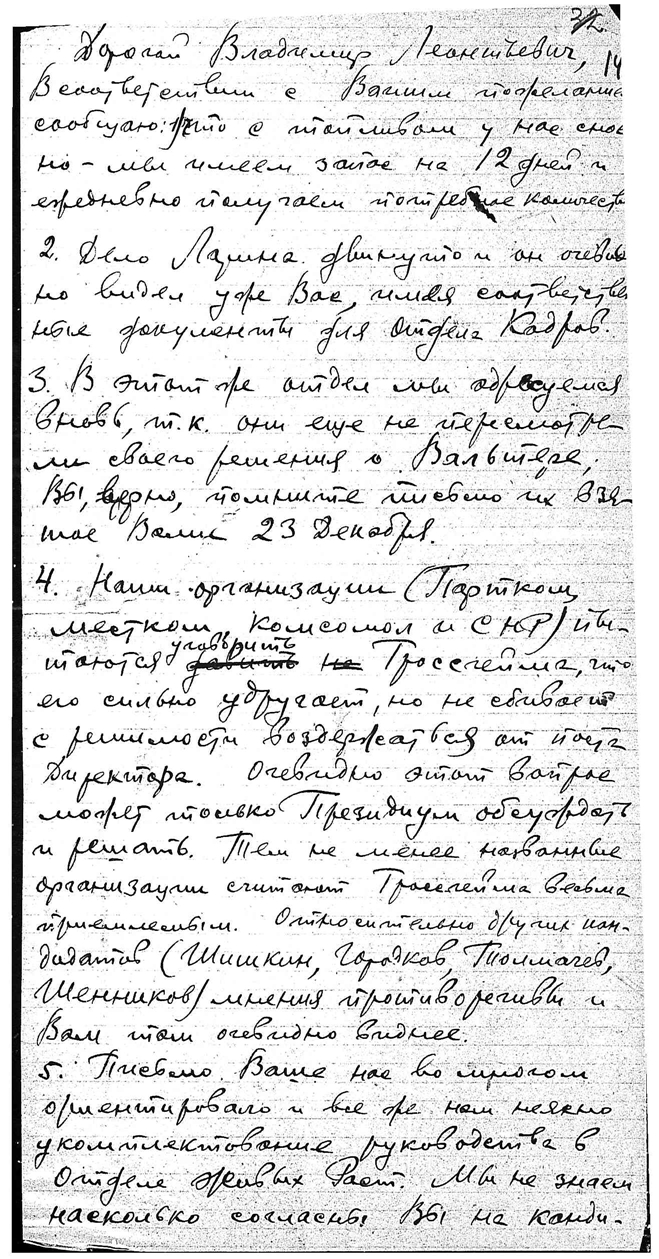 32
Дорогой Владимир Леонтьевич, 14
В соответствии с Вашим пожелание
сообщаю: 1/что с топливом у нас снос
но - мы имеем запас на 12 дней и
ежедневно получаем потребное количеств
2. Дело Ларина двинуто и он очевид
но видел уже Вас, имея соответствен
ные документы для Отдела Кадров.
3. В этот же отдел мы адресуемся
вновь, т.к. они еще не пересмотре-
ли своего решения о Вальтере,
Вы, верно, помните письмо их взя-
тое Вами 23 Декабря.
4. Наши организации (Партком,
местком, комсомол и СНР) пы-
таются уговорить Троссгейма, что
его сильно удручает, но не сбивает
с решимости воздержаться от поста
Директора. Очевидно этот вопрос
может только Президиум обсуждать
и решать. Тем не менее названные
организации считают Троссгейма весьма
приемлемым. Относительно других кан-
дидатов (Шишкин, Городков, Толмачев,
Шенников) мнения противоречивы и
Вам там очевидно виднее.
5. Письмо Ваше нас во многом
ориентировало и все же нам неясно
укомплектование руководства в
Отделе Живых Раст. Мы не знаем
насколько согласны Вы на канди-